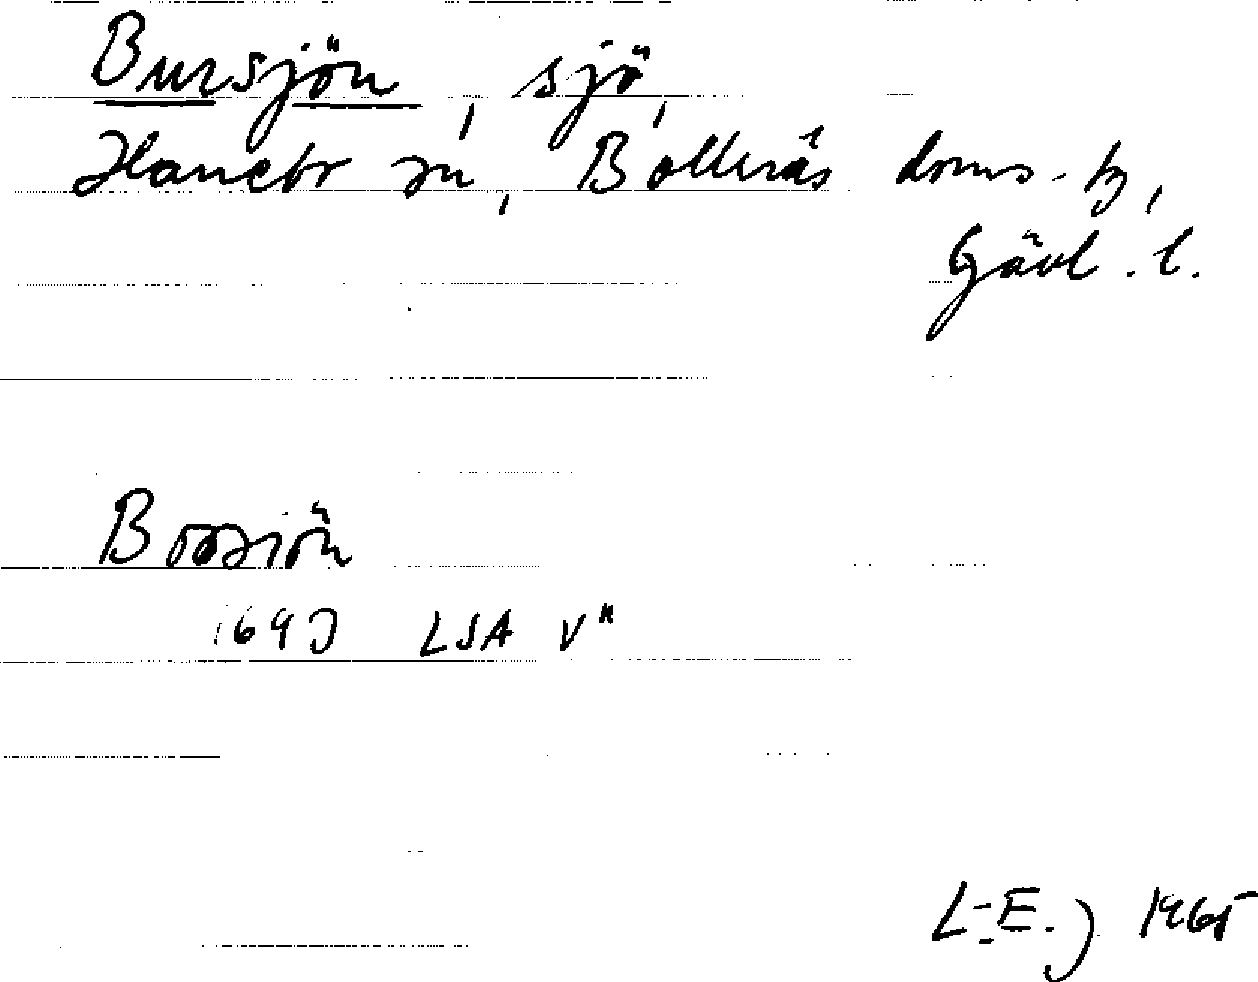 Bursjön, sjö,
Hanebo sn, Bollnäs doms.-
Gävl. l.
Borsiön
LSA V"
L-E.J 1965